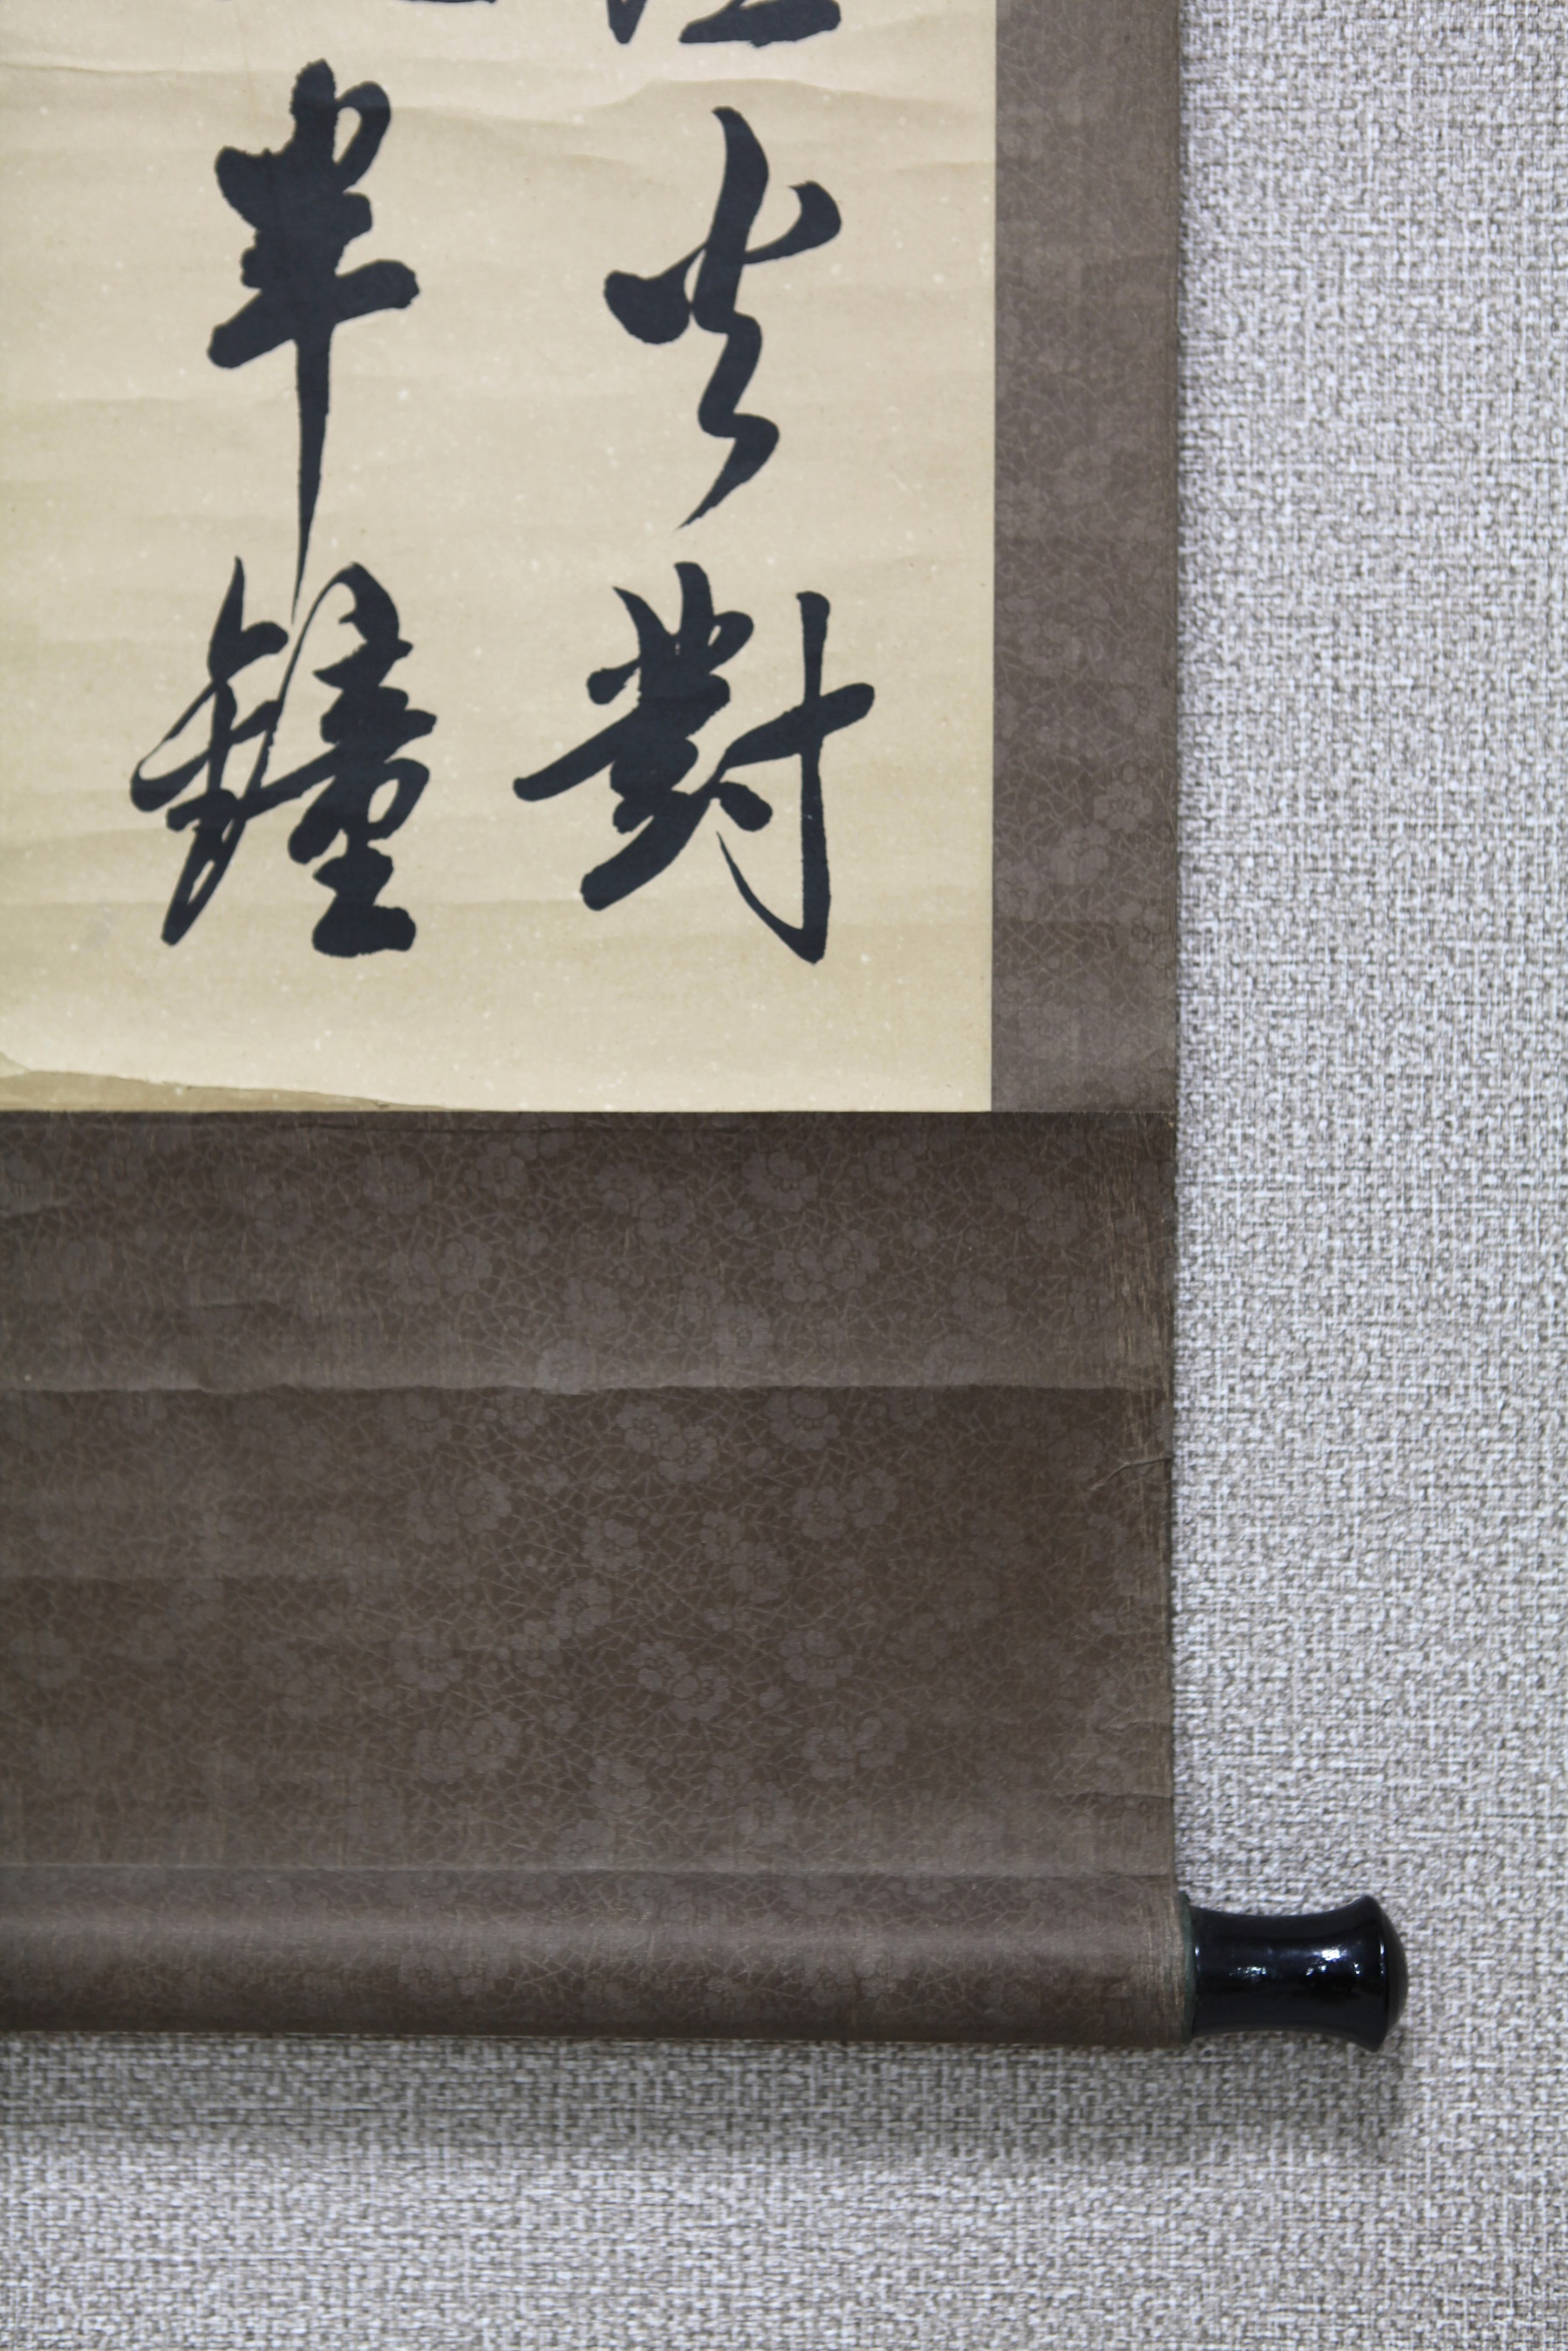 火對
半鐘